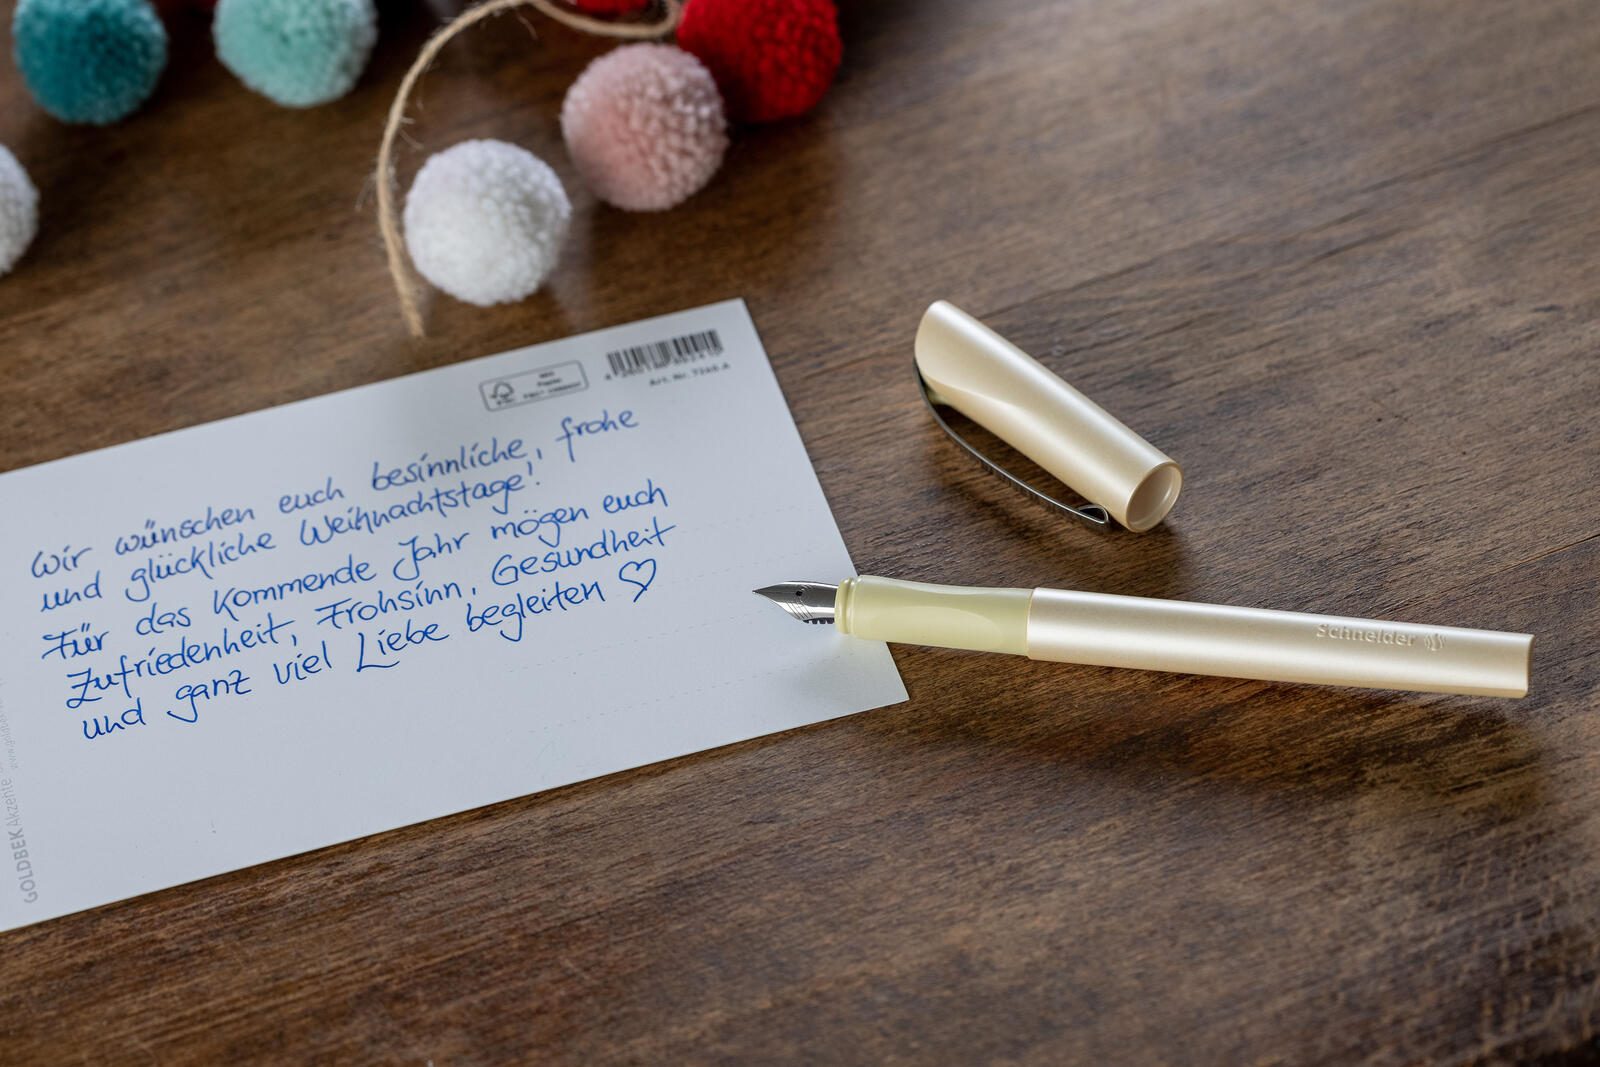 Wir wünschen euch besinnliche, frohe
und glückliche Weihnachtstage!
Für das kommende Jahr mögen euch
Zufriedenheit, Frohsinn, Gesundheit
und ganz viel Liebe begleiten ♡
Art. Nr. 7268 A
Schneider
GOLDBEK Akzente